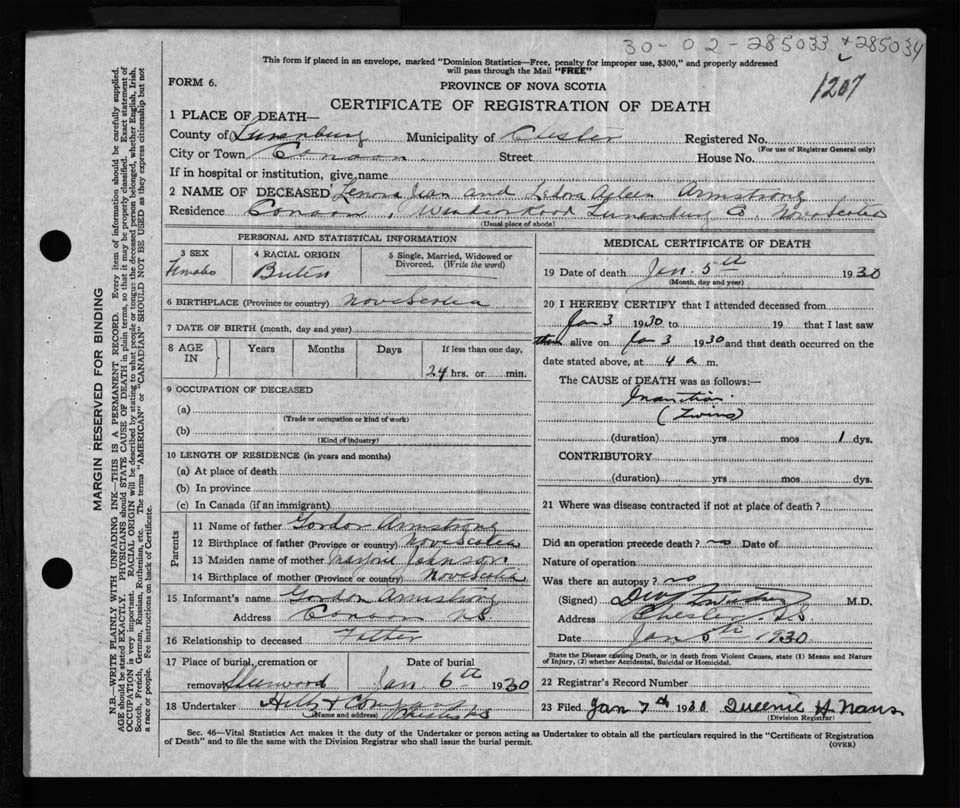 30-02-285033 + 285034
This form if placed in an envelope, marked "Dominion Statistics—Free, penalty for improper use, $300," and properly addressed
will pass through the Mail "FREE"
1207
FORM 6.
PROVINCE OF NOVA SCOTIA
CERTIFICATE OF REGISTRATION OF DEATH
1 PLACE OF DEATH—
County of Lunenburg Municipality of Chester Registered No.
(For use of Registrar General only)
City or Town Canaan Street House No.
If in hospital or institution, give name
2 NAME OF DECEASED Lenora Jean and Ledora Aileen Armstrong
Residence Canaan, Windsor Road Lunenburg Co. Nova Scotia
(Usual place of abode)
PERSONAL AND STATISTICAL INFORMATION
3 SEX
Female
4 RACIAL ORIGIN
5 Single, Married, Widowed or
Divorced. (Write the word)
6 BIRTHPLACE (Province or country) Nova Scotia
7 DATE OF BIRTH (month, day and year)
8 AGE
IN
Years Months Days If less than one day,
24 hrs. or min.
9 OCCUPATION OF DECEASED
(a)
(Trade or occupation or kind of work)
(b)
(Kind of industry)
10 LENGTH OF RESIDENCE (in years and months)
(a) At place of death
(b) In province
(c) In Canada (if an immigrant)
Parents
11 Name of father Gordon Armstrong
12 Birthplace of father (Province or country) Nova Scotia
13 Maiden name of mother Johnson
14 Birthplace of mother (Province or country) Nova Scotia
15 Informant's name Gordon Armstrong
Address Canaan N.S.
16 Relationship to deceased Father
17 Place of burial, cremation or
removal Sherwood
Date of burial
Jan. 6th 1930
18 Undertaker
(Name and address) Chester N.S.
MEDICAL CERTIFICATE OF DEATH
19 Date of death Jan. 5th 1930
(Month, day and year)
20 I HEREBY CERTIFY that I attended deceased from
Jan 3 1930 to 19 that I last saw
them alive on Jan 3 1930 and that death occurred on the
date stated above, at 4 a m.
The CAUSE of DEATH was as follows:—
Inanition
(Twins)
(duration) yrs mos 1 dys.
CONTRIBUTORY
(duration) yrs. mos. dys.
21 Where was disease contracted if not at place of death?
Did an operation precede death? no Date of
Nature of operation
Was there an autopsy? no
(Signed) M.D.
Address Chester N.S.
Date Jan 1930
State the Disease causing Death, or in death from Violent Causes, state (1) Means and Nature
of Injury, (2) whether Accidental, Suicidal or Homicidal.
22 Registrar's Record Number
23 Filed Jan 7th 1930 Queenie H Nauss
(Division Registrar)
Sec. 46—Vital Statistics Act makes it the duty of the Undertaker or person acting as Undertaker to obtain all the particulars required in the "Certificate of Registration
of Death" and to file the same with the Division Registrar who shall issue the burial permit.
(OVER)
MARGIN RESERVED FOR BINDING
N.B.—WRITE PLAINLY WITH UNFADING INK—THIS IS A PERMANENT RECORD. Every item of information should be carefully supplied.
AGE should be stated EXACTLY. PHYSICIANS should STATE CAUSE OF DEATH in plain terms, so that it may be properly classified. Exact statement of
OCCUPATION is very important. RACIAL ORIGIN will be described by stating to what people or tongue the deceased person belonged, whether English, Irish,
Scotch, French, German, Russian, Ruthenian, etc. The terms "AMERICAN" or "CANADIAN" SHOULD NOT BE USED as they express citizenship but not
a race or people. See instructions on back of Certificate.